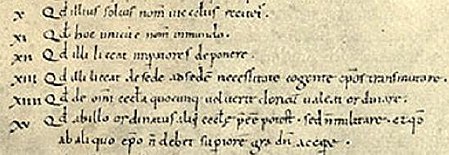 X Qđ illius solius nom̄ in eccłis recitet̄.
XI Qđ hoc unicū ē nom̄ in mundo.
XII Qđ illi liceat imp̄atores deponere.
XIII Qđ illi liceat de sede ad sedē necessitate cogente ep̄os transmutare.
XIIII Qđ de om̄i eccła quocunq; voluerit clericū valeat ordinare.
XV Qđ ab illo ordinatus alii eccłe p̄ee potest. sed n̄ militare. et qđ
ab aliquo ep̄o n̄ debet sup̄iorē gradū accip̄e.